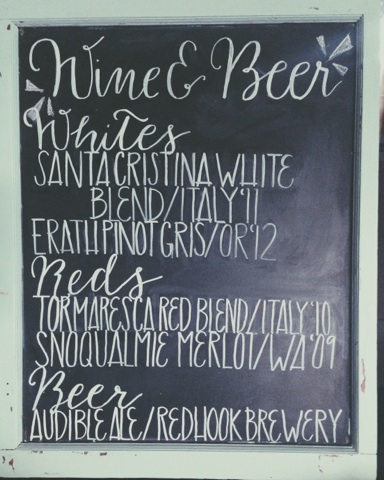 Wine & Beer
Whites
SANTA CRISTINA WHITE
BLEND/ITALY '11
ERATH PINOT GRIS/OR '12
Reds
TORMARESCA RED BLEND/ITALY '10
SNOQUALMIE MERLOT/WA '09
Beer
AUDIBLE ALE/REDHOOK BREWERY